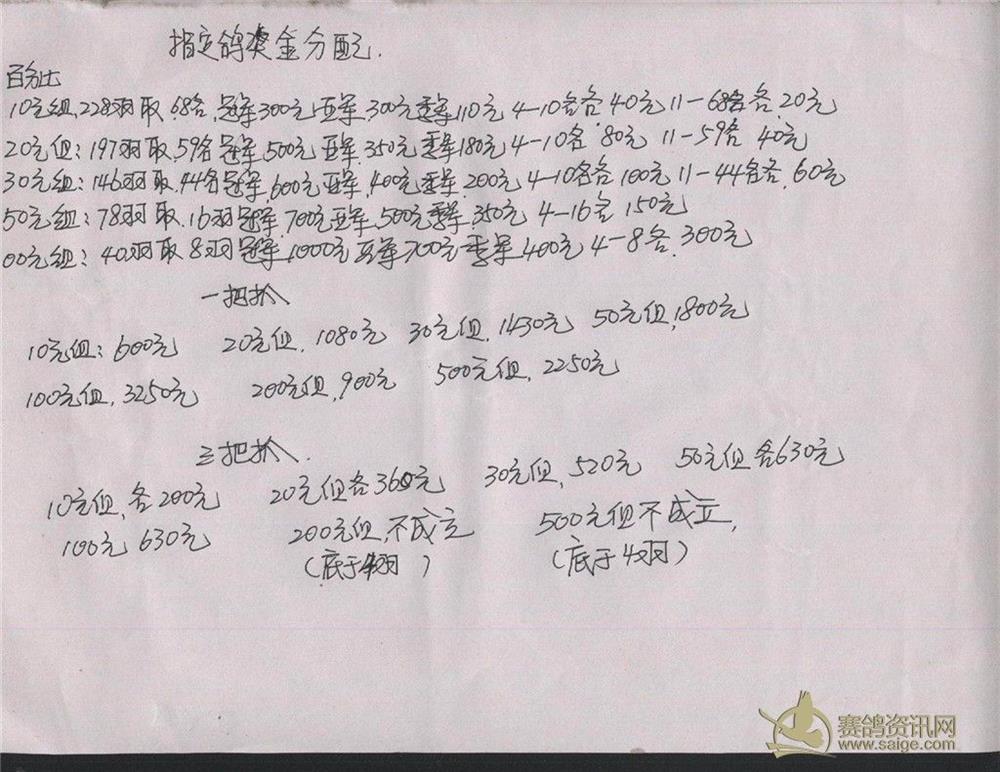 指定鸽奖金分配.
百分比
10元组,228羽取.68名,冠军300元亚军,300元季军110元 4-10名各40元11-68名各.20元
20元组:197羽取.59名冠军,500元亚军.350元季军180元4-10名 80元 11-59名 40元
30元组:146羽取.44名冠军,600元亚军,400元季军.200元4-10名各100元11-44名各.60元
50元组:78羽取.16羽冠军,700元亚军,500元季军.350元 4-16名 150元
00元组:40羽取8羽冠军1000元亚军700元季军400元4-8名.300元
一把抓
10元组:600元 20元组.1080元 30元组.1430元 50元组,1800元
100元组.3250元 200元组,900元 500元组,2250元
三把抓.
10元组,各200元 20元组各360元 30元组,520元 50元组各630元
100元630元 200元组.不成立 500元组不成立,
(底于4羽) (底于4羽)
赛鸽资讯网
www.saige.com